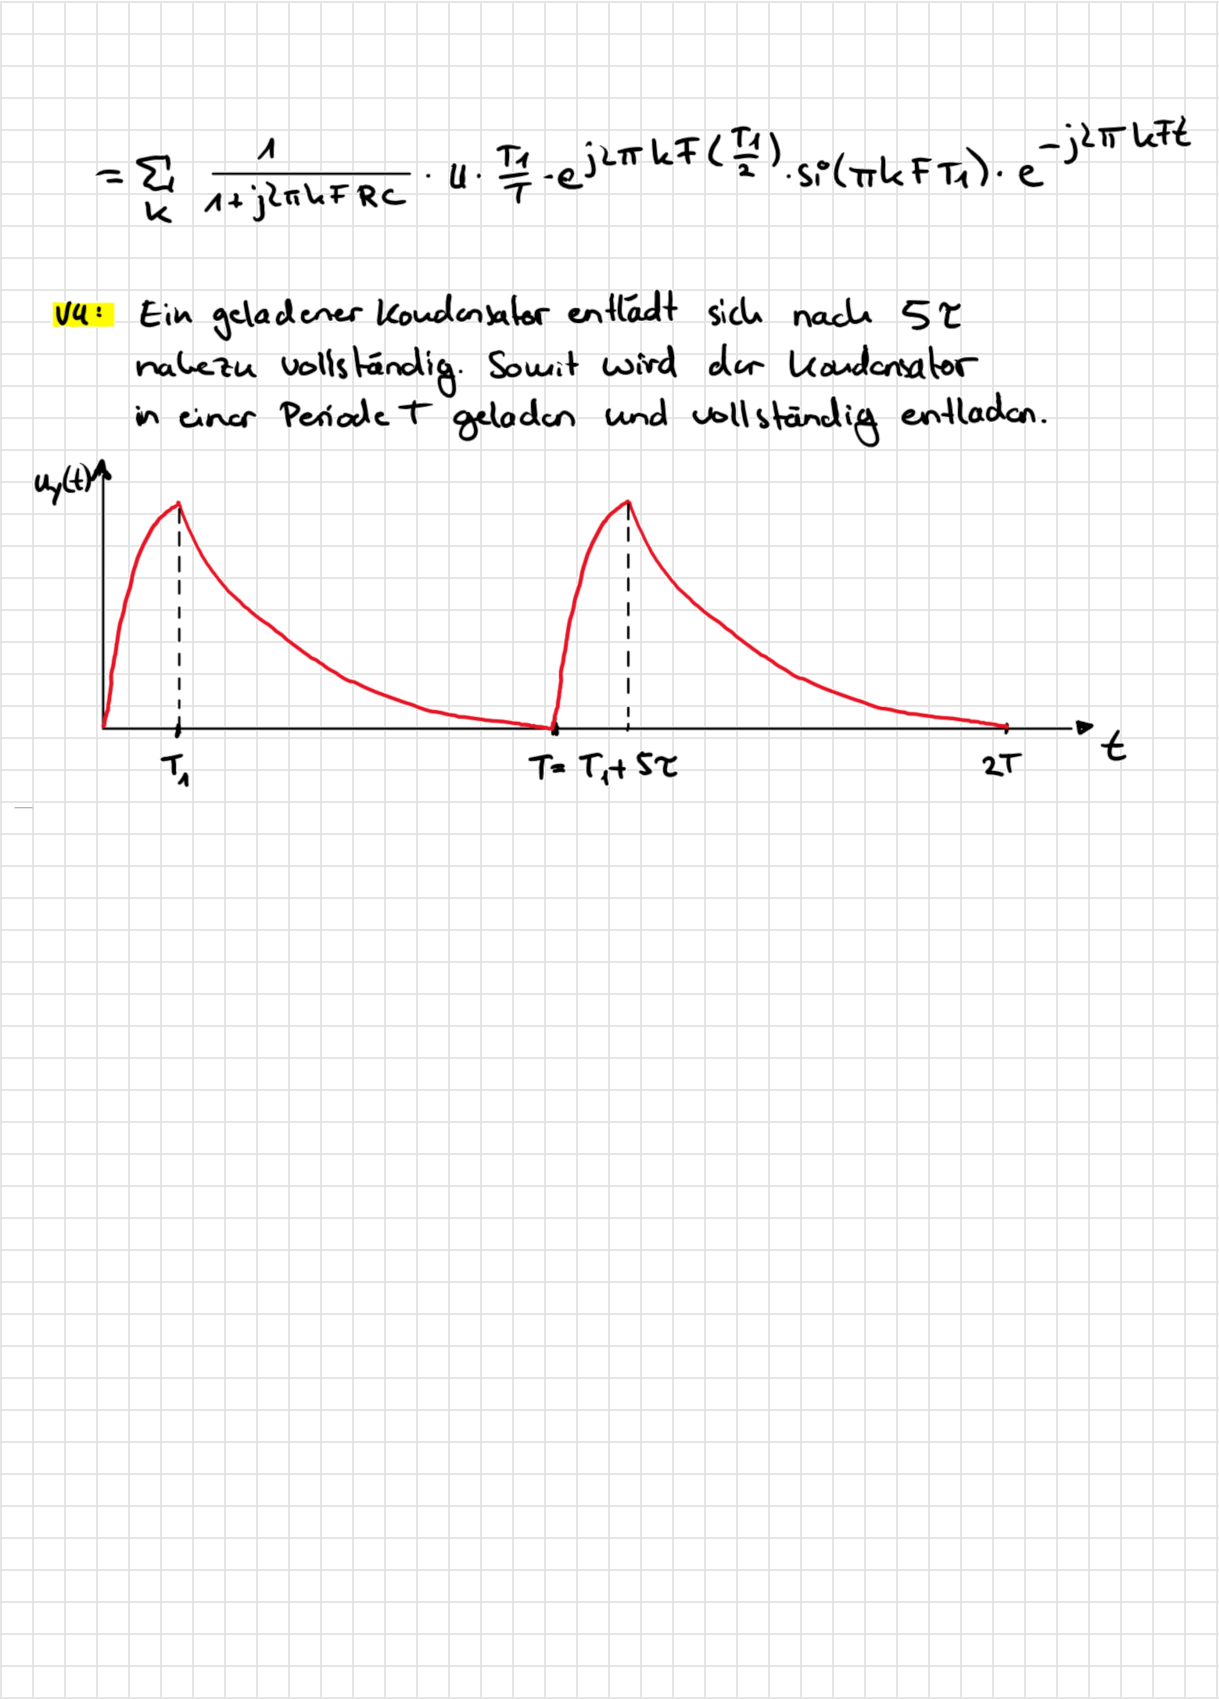 = Σ_k 1/(1+j2πkFRC) · U · T₁/T · e^{j2πkF(T₁/2)} · si(πkFT₁) · e^{-j2πkFt}
V4: Ein geladener Kondensator entlädt sich nach 5τ
nahezu vollständig. Somit wird der Kondensator
in einer Periode T geladen und vollständig entladen.
u_y(t)
T₁ T = T₁ + 5τ 2T t